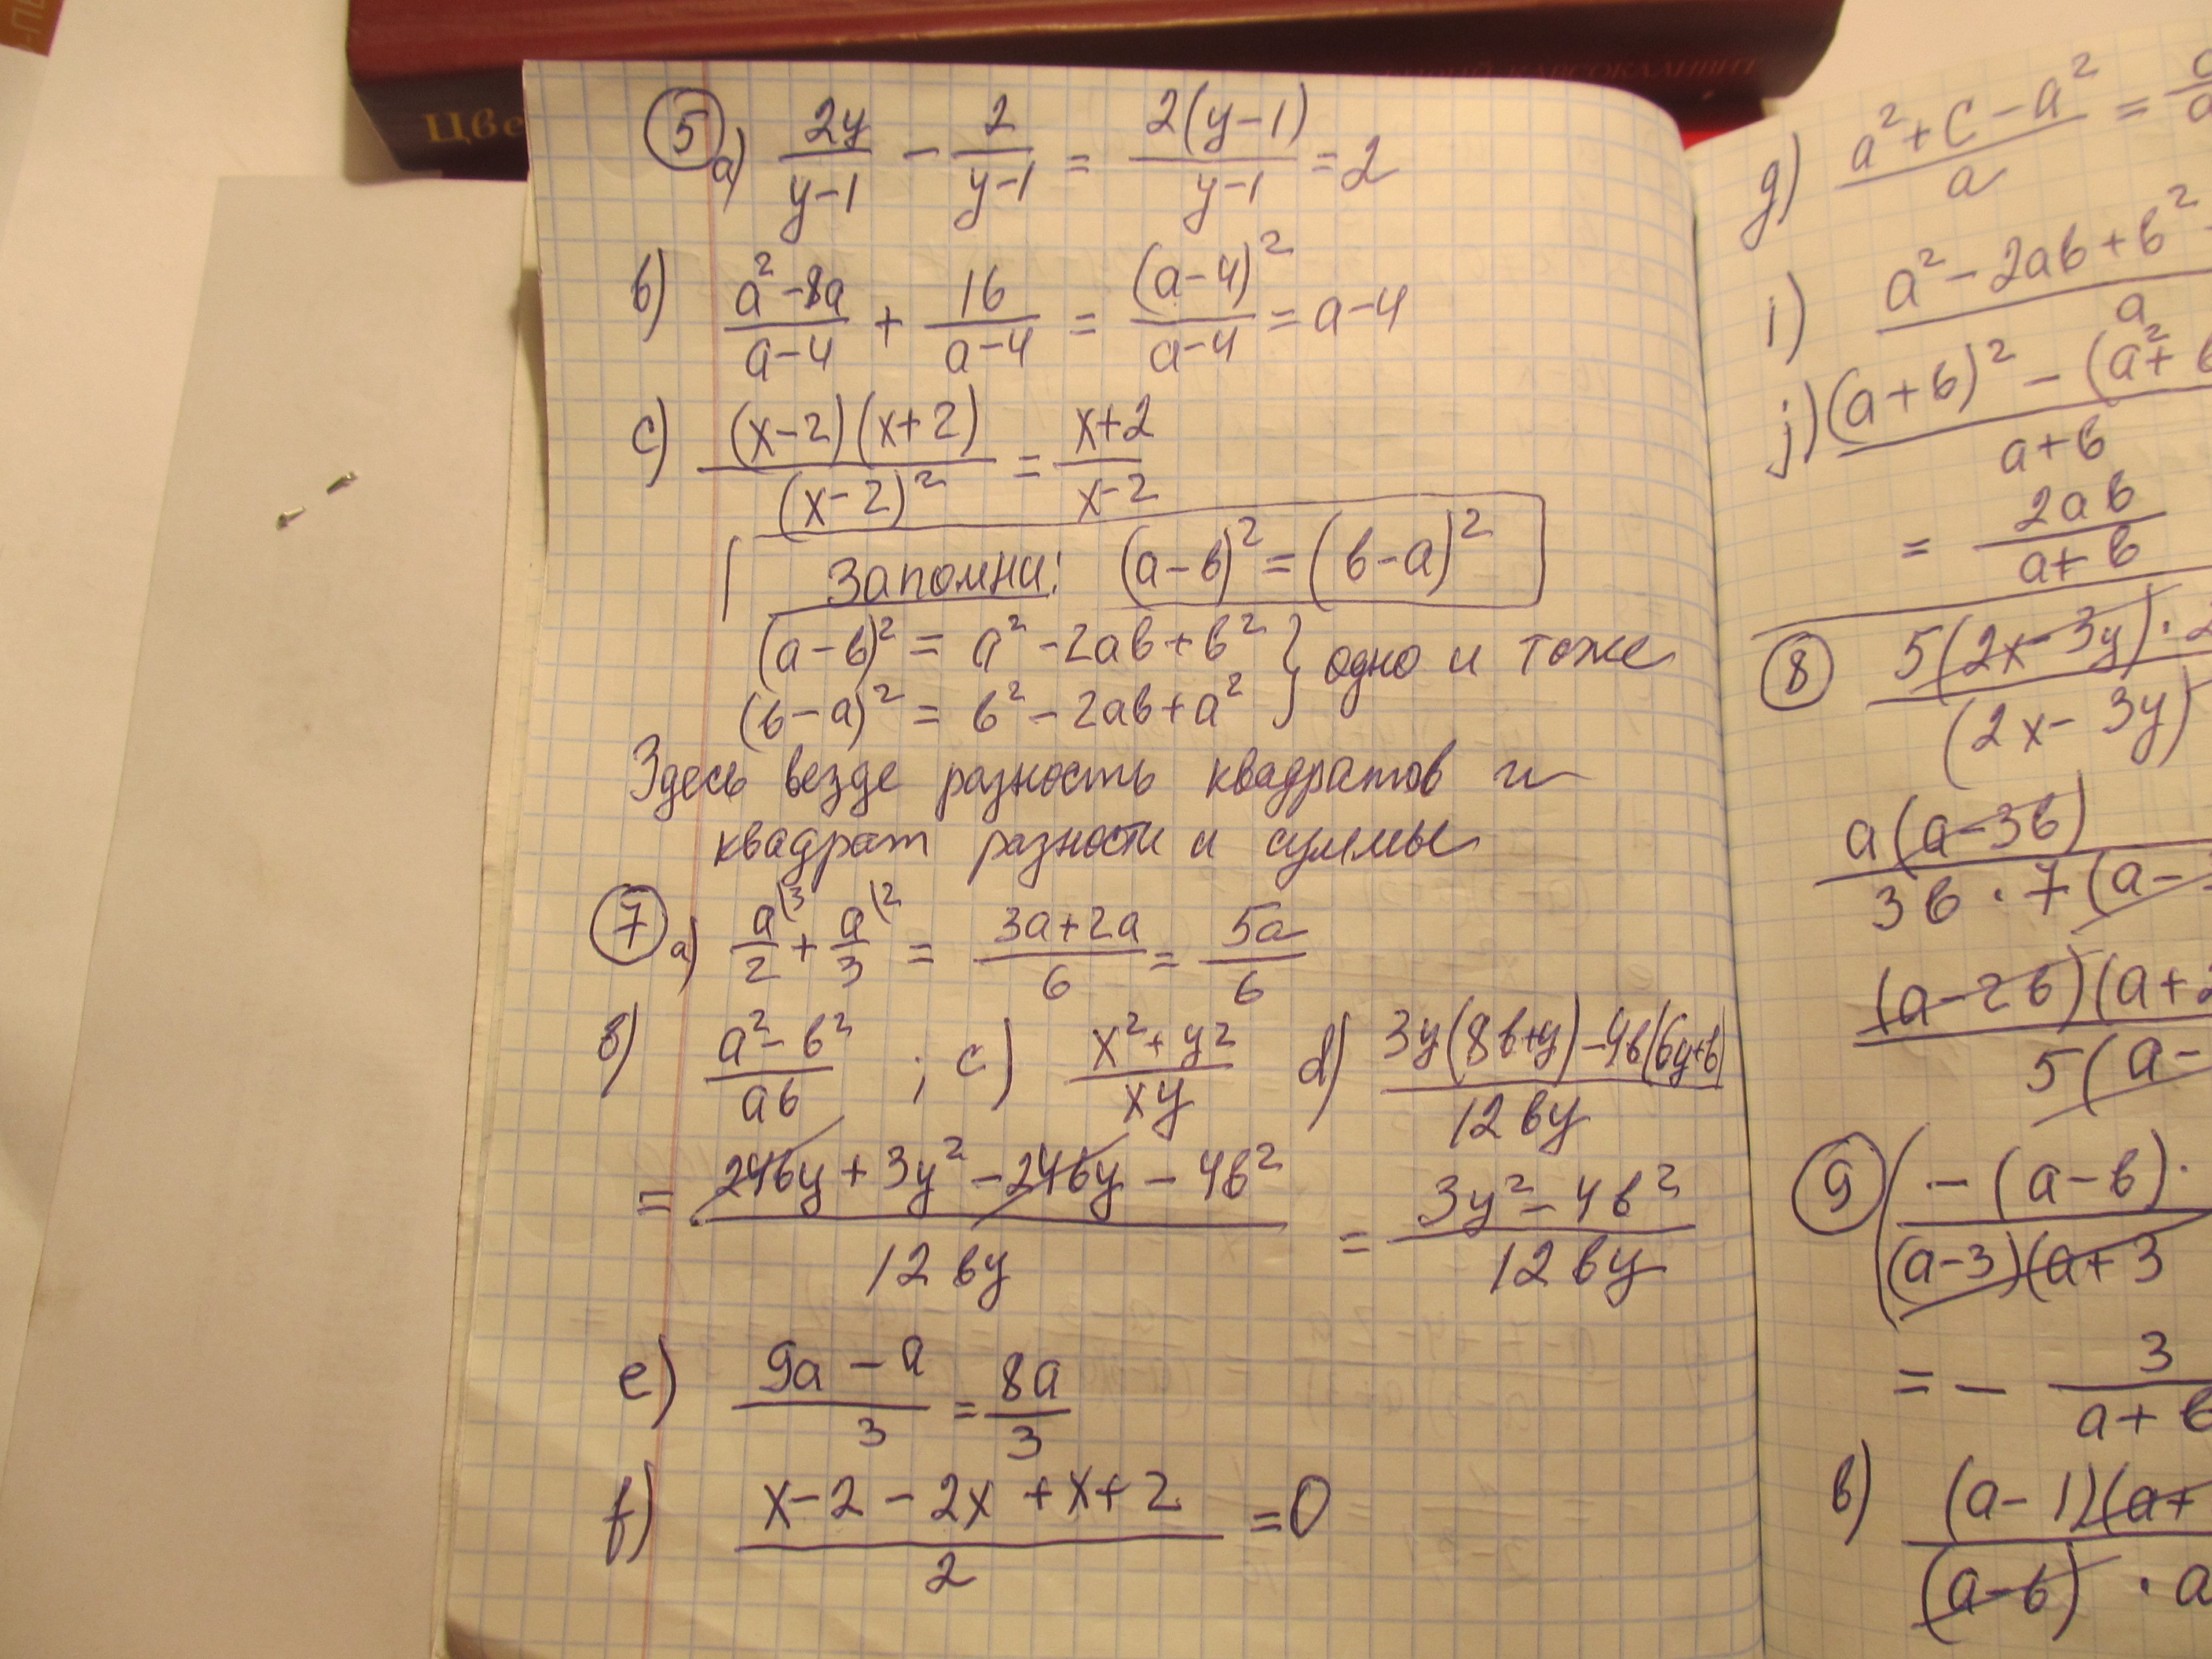 Цве
⑤ a) 2y/(y-1) - 2/(y-1) = 2(y-1)/(y-1) = 2
b) (a²-8a)/(a-4) + 16/(a-4) = (a-4)²/(a-4) = a-4
c) (x-2)(x+2)/(x-2)² = (x+2)/(x-2)
Запомни: (a-b)² = (b-a)²
(a-b)² = a²-2ab+b² } одно и тоже
(b-a)² = b²-2ab+a²
Здесь везде разность квадратов и
квадрат разности и суммы
⑦ a) a/2 (3 + a/3 (2 = (3a+2a)/6 = 5a/6
b) (a²-b²)/ab ; c) (x²+y²)/xy d) (3y(8b+y)-4b(6y+b))/12by
= (24by+3y²-24by-4b²)/12by = (3y²-4b²)/12by
e) (9a-a)/3 = 8a/3
f) (x-2-2x+x+2)/2 = 0
g) (a²+c-a²)/a =
i) a²-2ab+b² / a
j) (a+b)² - (a²+b / a+b
= 2ab/(a+b)
⑧ 5(2x-3y)· / (2x-3y)
a(a-3b) / 3b·7(a-
(a-2b)(a+2 / 5(a-
⑨ (-(a-b)· / (a-3)(a+3
= - 3/(a+b
b) (a-1)(a+ / (a-b)·a